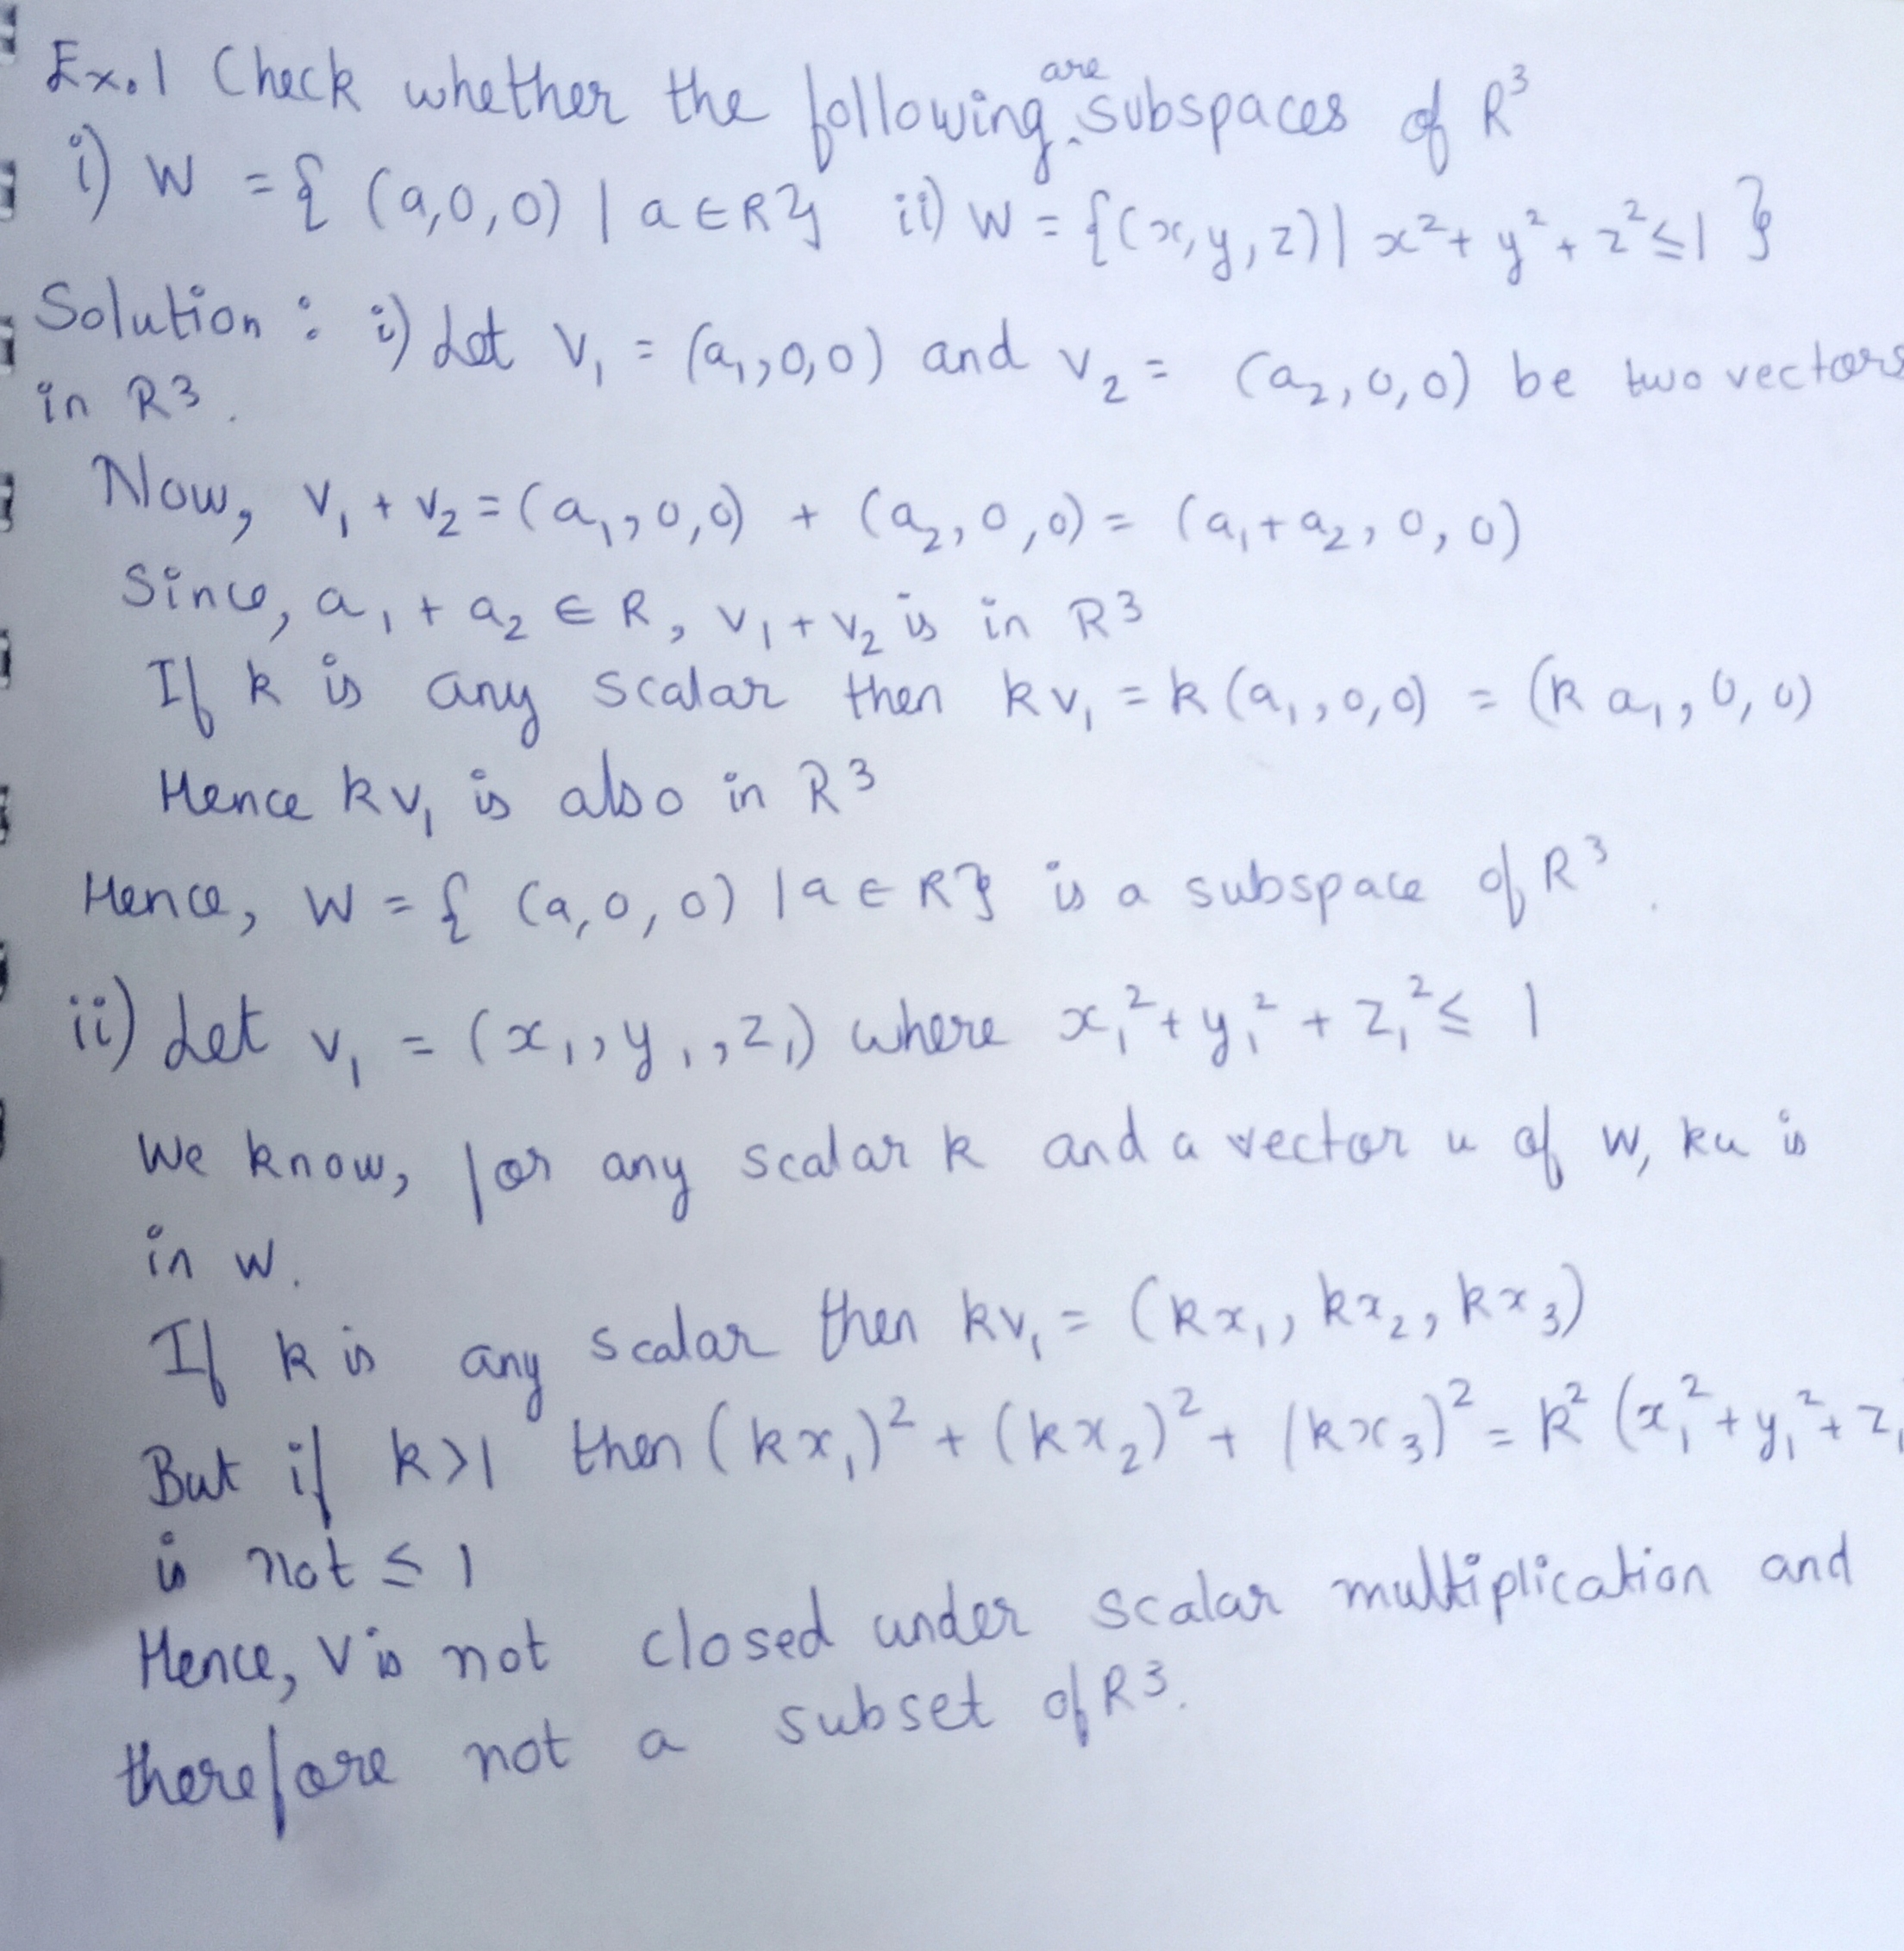 Ex.1 Check whether the following are subspaces of R³
i) W = { (a,0,0) | a ∈ R} ii) W = {(x,y,z) | x² + y² + z² ≤ 1 }
Solution : i) Let v₁ = (a₁,0,0) and v₂ = (a₂,0,0) be two vectors
in R3.
Now, v₁ + v₂ = (a₁,0,0) + (a₂,0,0) = (a₁+a₂,0,0)
Since, a₁ + a₂ ∈ R, v₁ + v₂ is in R3
If k is any scalar then kv₁ = k(a₁,0,0) = (k a₁,0,0)
Hence kv₁ is also in R3
Hence, W = { (a,0,0) | a ∈ R} is a subspace of R³.
ii) Let v₁ = (x₁,y₁,z₁) where x₁² + y₁² + z₁² ≤ 1
We know, for any scalar k and a vector u of W, ku is
in W.
If k is any scalar then kv₁ = (kx₁, kx₂, kx₃)
But if k>1 then (kx₁)² + (kx₂)² + (kx₃)² = k² (x₁² + y₁² + z₁
is not ≤ 1
Hence, V is not closed under scalar multiplication and
therefore not a subset of R3.